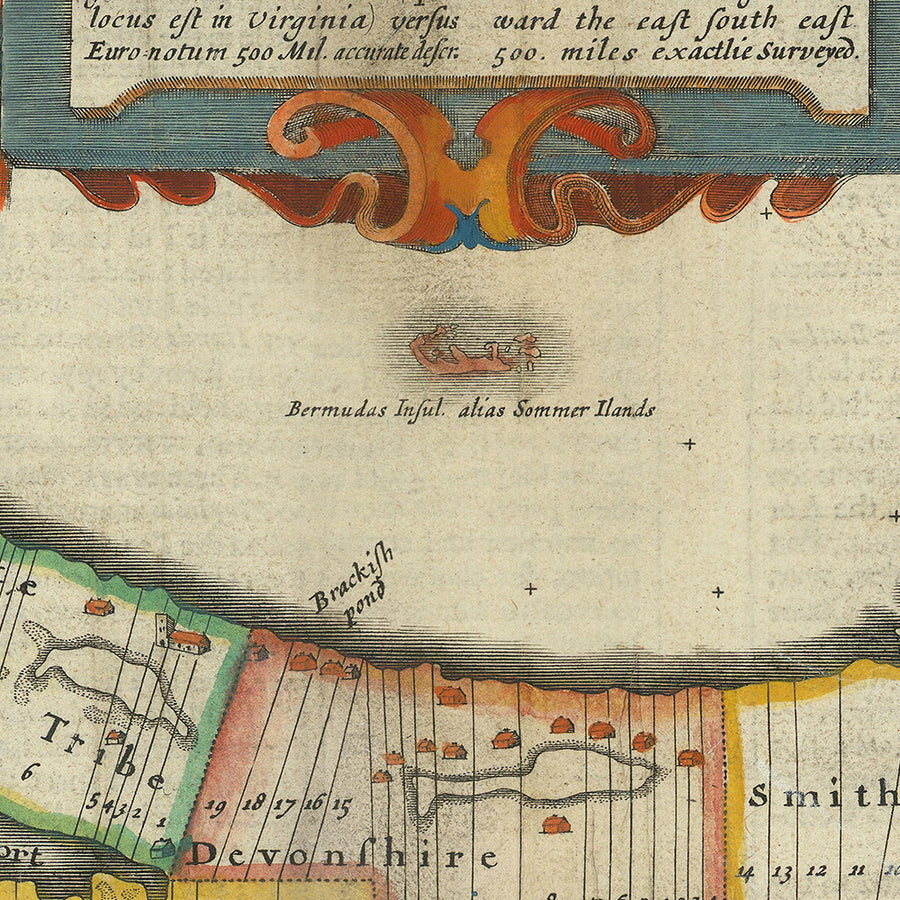 locus eſt in Virginia) verſus
Euro-notum 500 Mil. accurate deſcr.
ward the eaſt ſouth eaſt
500. miles exactlie Surveyed.
Bermudas Inſul. alias Sommer Ilands
Brackiſh
pond
Tribe
6
5 4 3 2 1
19 18 17 16 15
Smith
Devonſhire
14 13 12 11 10
ort